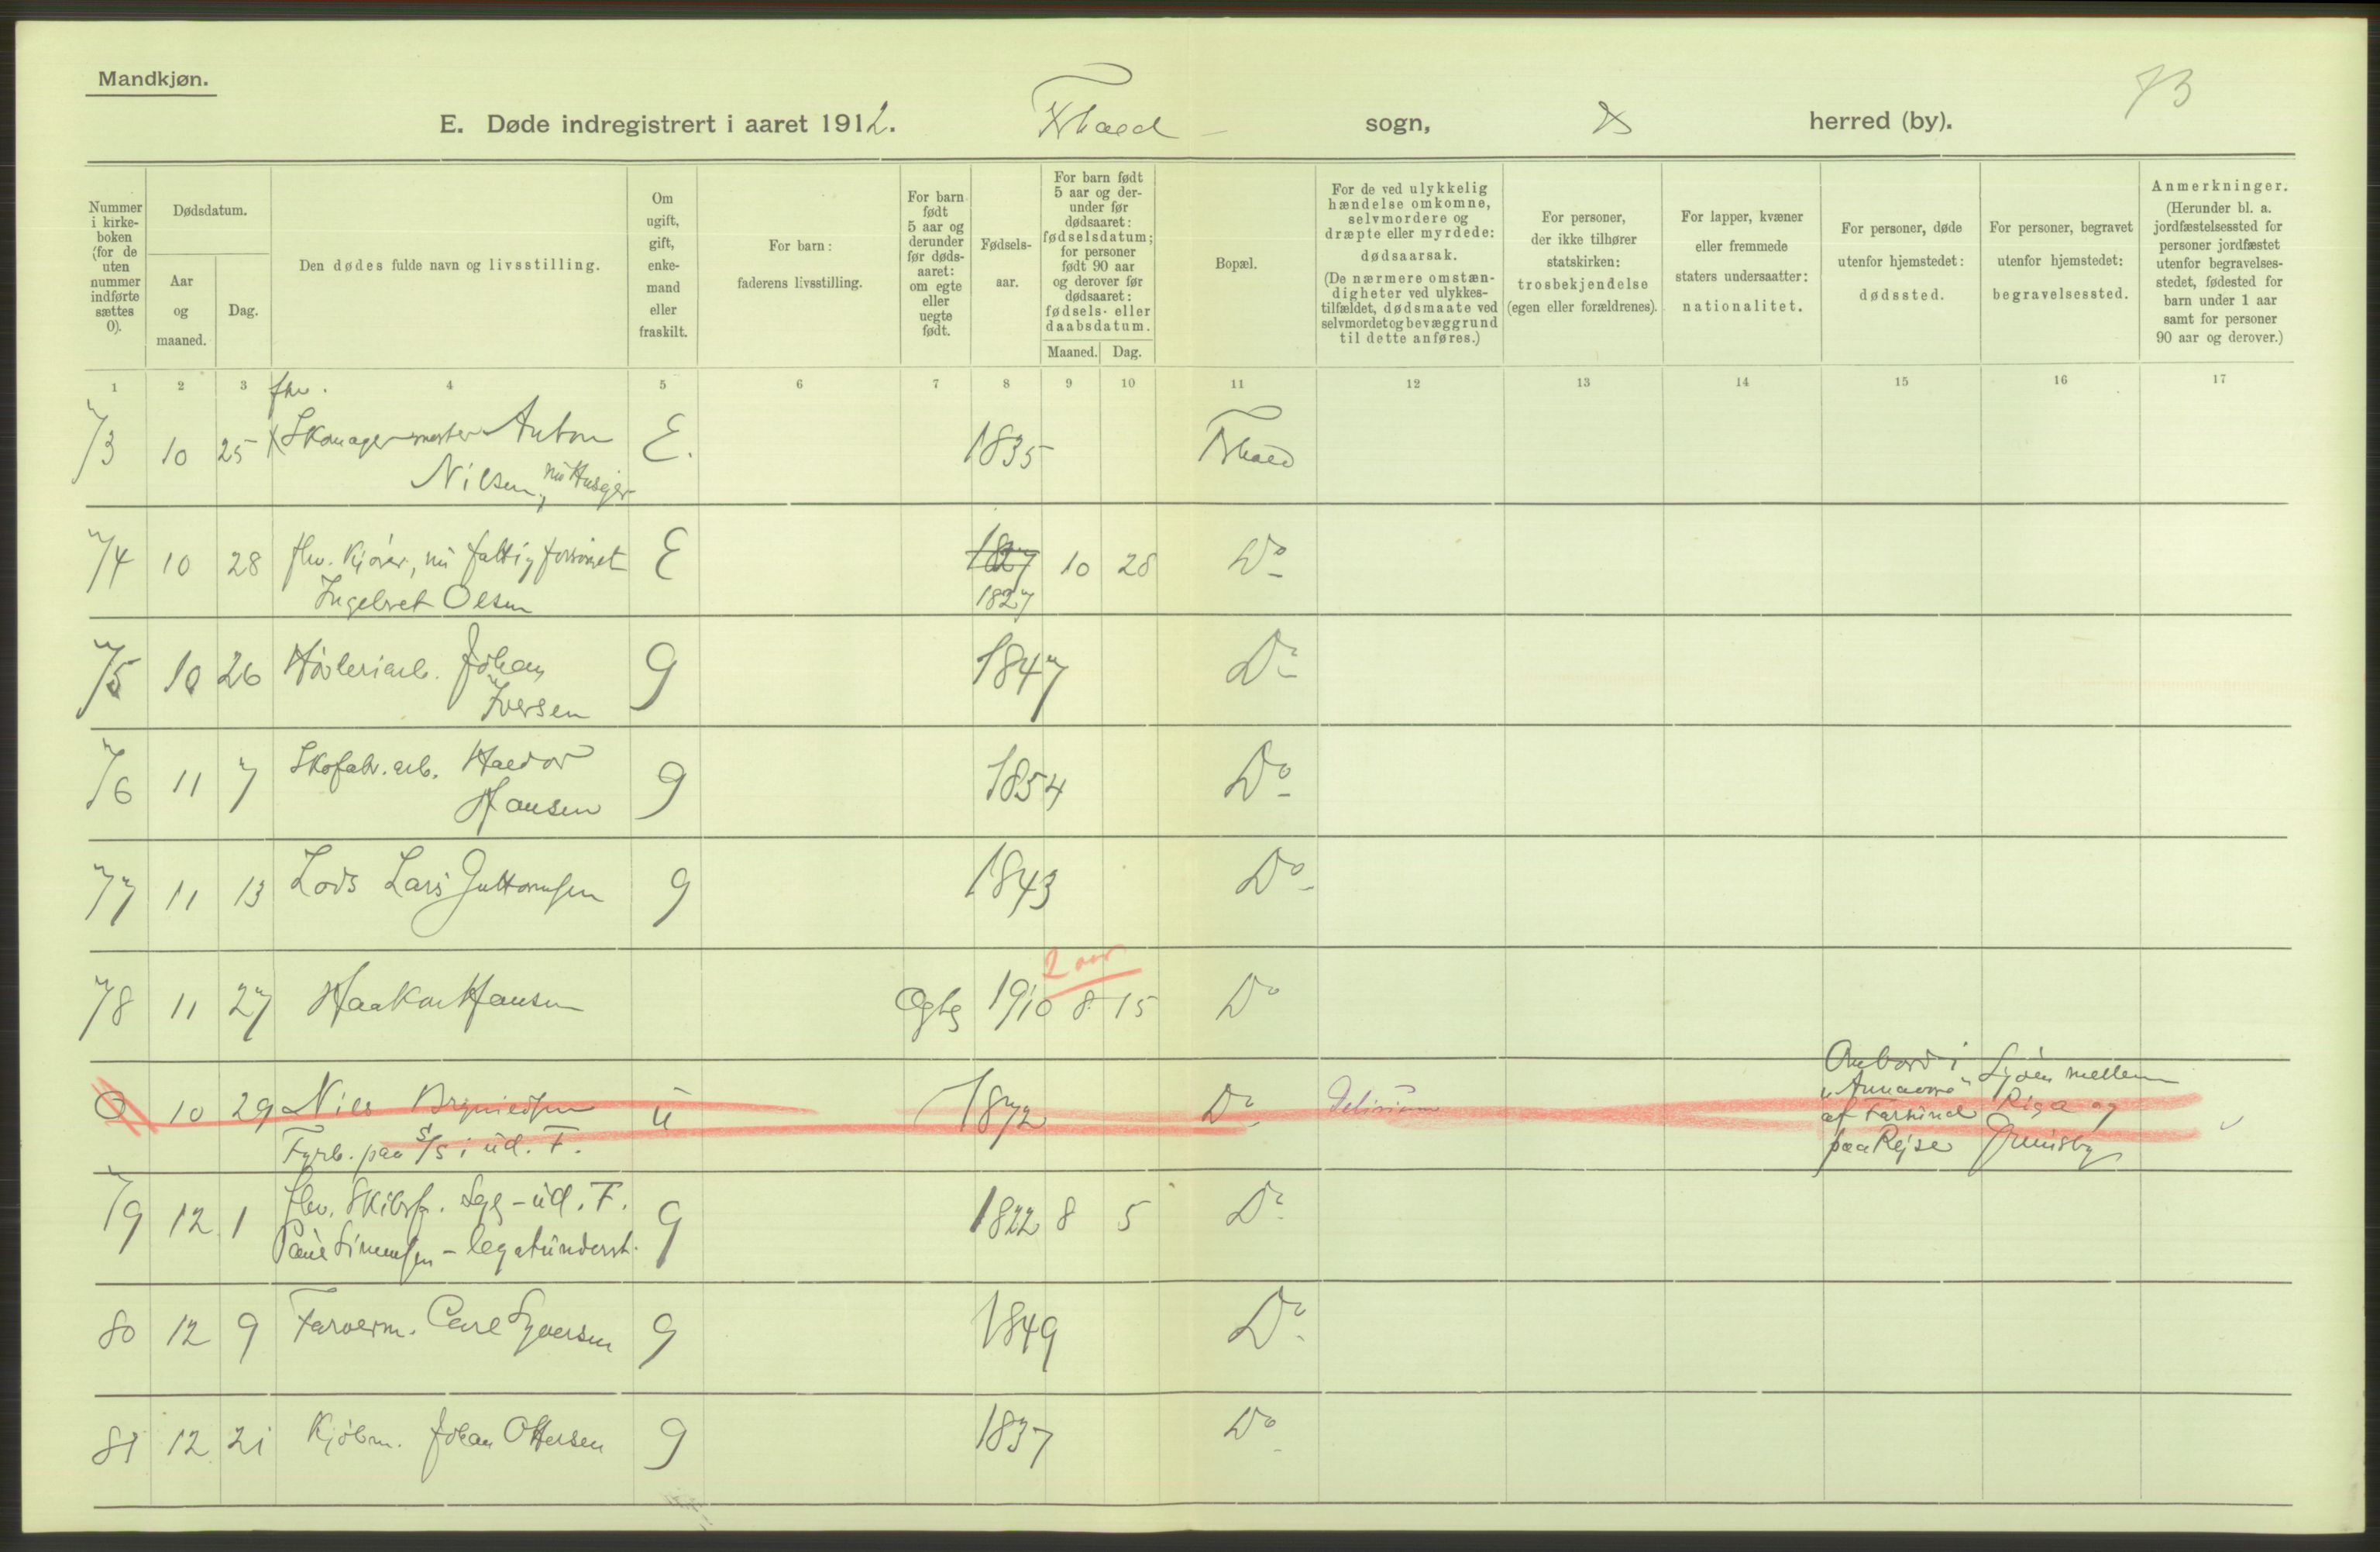 Mandkjøn.
73
E. Døde indregistrert i aaret 1912. Frhald sogn, herred (by).
Nummer i kirke-boken (for de uten nummer indførte sættes 0).
Dødsdatum.
Aar og maaned.
Dag.
Den dødes fulde navn og livsstilling.
Om ugift, gift, enke-mand eller fraskilt.
For barn: faderens livsstilling.
For barn født 5 aar og derunder før døds-aaret: om egte eller uegte født.
Fødsels-aar.
For barn født 5 aar og der-under før dødsaaret: fødselsdatum; for personer født 90 aar og derover før dødsaaret: fødsels- eller daabsdatum.
Maaned. Dag.
Bopæl.
For de ved ulykkelig hændelse omkomne, selvmordere og dræpte eller myrdede: dødsaarsak. (De nærmere omstæn-digheter ved ulykkes-tilfældet, dødsmaate ved selvmordet og bevæggrund til dette anføres.)
For personer, der ikke tilhører statskirken: trosbekjendelse (egen eller forældrenes).
For lapper, kvæner eller fremmede staters undersaatter: nationalitet.
For personer, døde utenfor hjemstedet: dødssted.
For personer, begravet utenfor hjemstedet: begravelsessted.
Anmerkninger. (Herunder bl. a. jordfæstelsessted for personer jordfæstet utenfor begravelses-stedet, fødested for barn under 1 aar samt for personer 90 aar og derover.)
1 2 3 4 5 6 7 8 9 10 11 12 13 14 15 16 17
fhv.
73 10 25 Skomagermester Anton E. 1835 Frhald
Nilsen, nu Huseier
74 10 28 fhv. Kjører, nu fattigforsørget E 1827 10 28 Do
Ingebret Olsen 1827
75 10 26 Høvleriarb. Johan G 1847 Do
Iversen
76 11 7 Skofabr. arb. Haldor G 1854 Do
Hansen
77 11 13 Lods Lars Guttormsen G 1843 Do
2 aar
78 11 27 Haakon Hansen Egte 1910 8 15 Do
Ombord i Sjøen mellem
0 10 29 Nils u 1872 Do Delirium "Annaomo" Riga og
af Farsund
Fyrb. paa S/S i ud. F. paa Rejse Grimsby
79 12 1 fhv. Skibsf. - ud. F. G 1822 8 5 Do
Paul Simensen - legatunderst.
80 12 9 Farverm. Carl Syversen G 1849 Do
81 12 21 Kjøbm. Johan Ottersen G 1837 Do